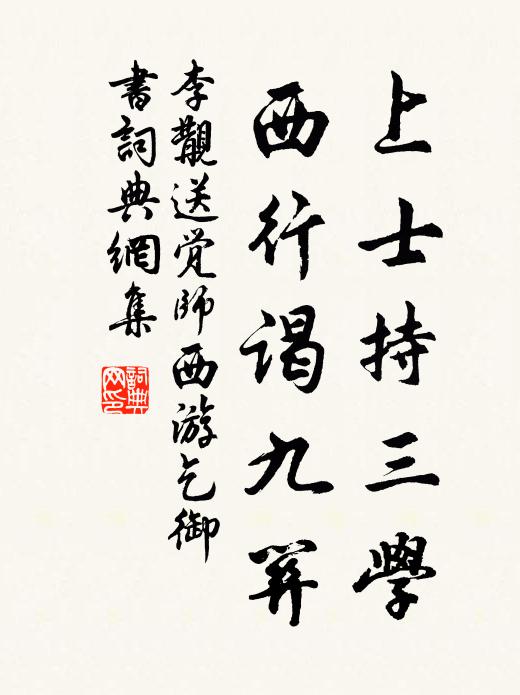 上士持三學
西行謁九
李覯送覚師西游乞御
書詞典網集
詞典
网印